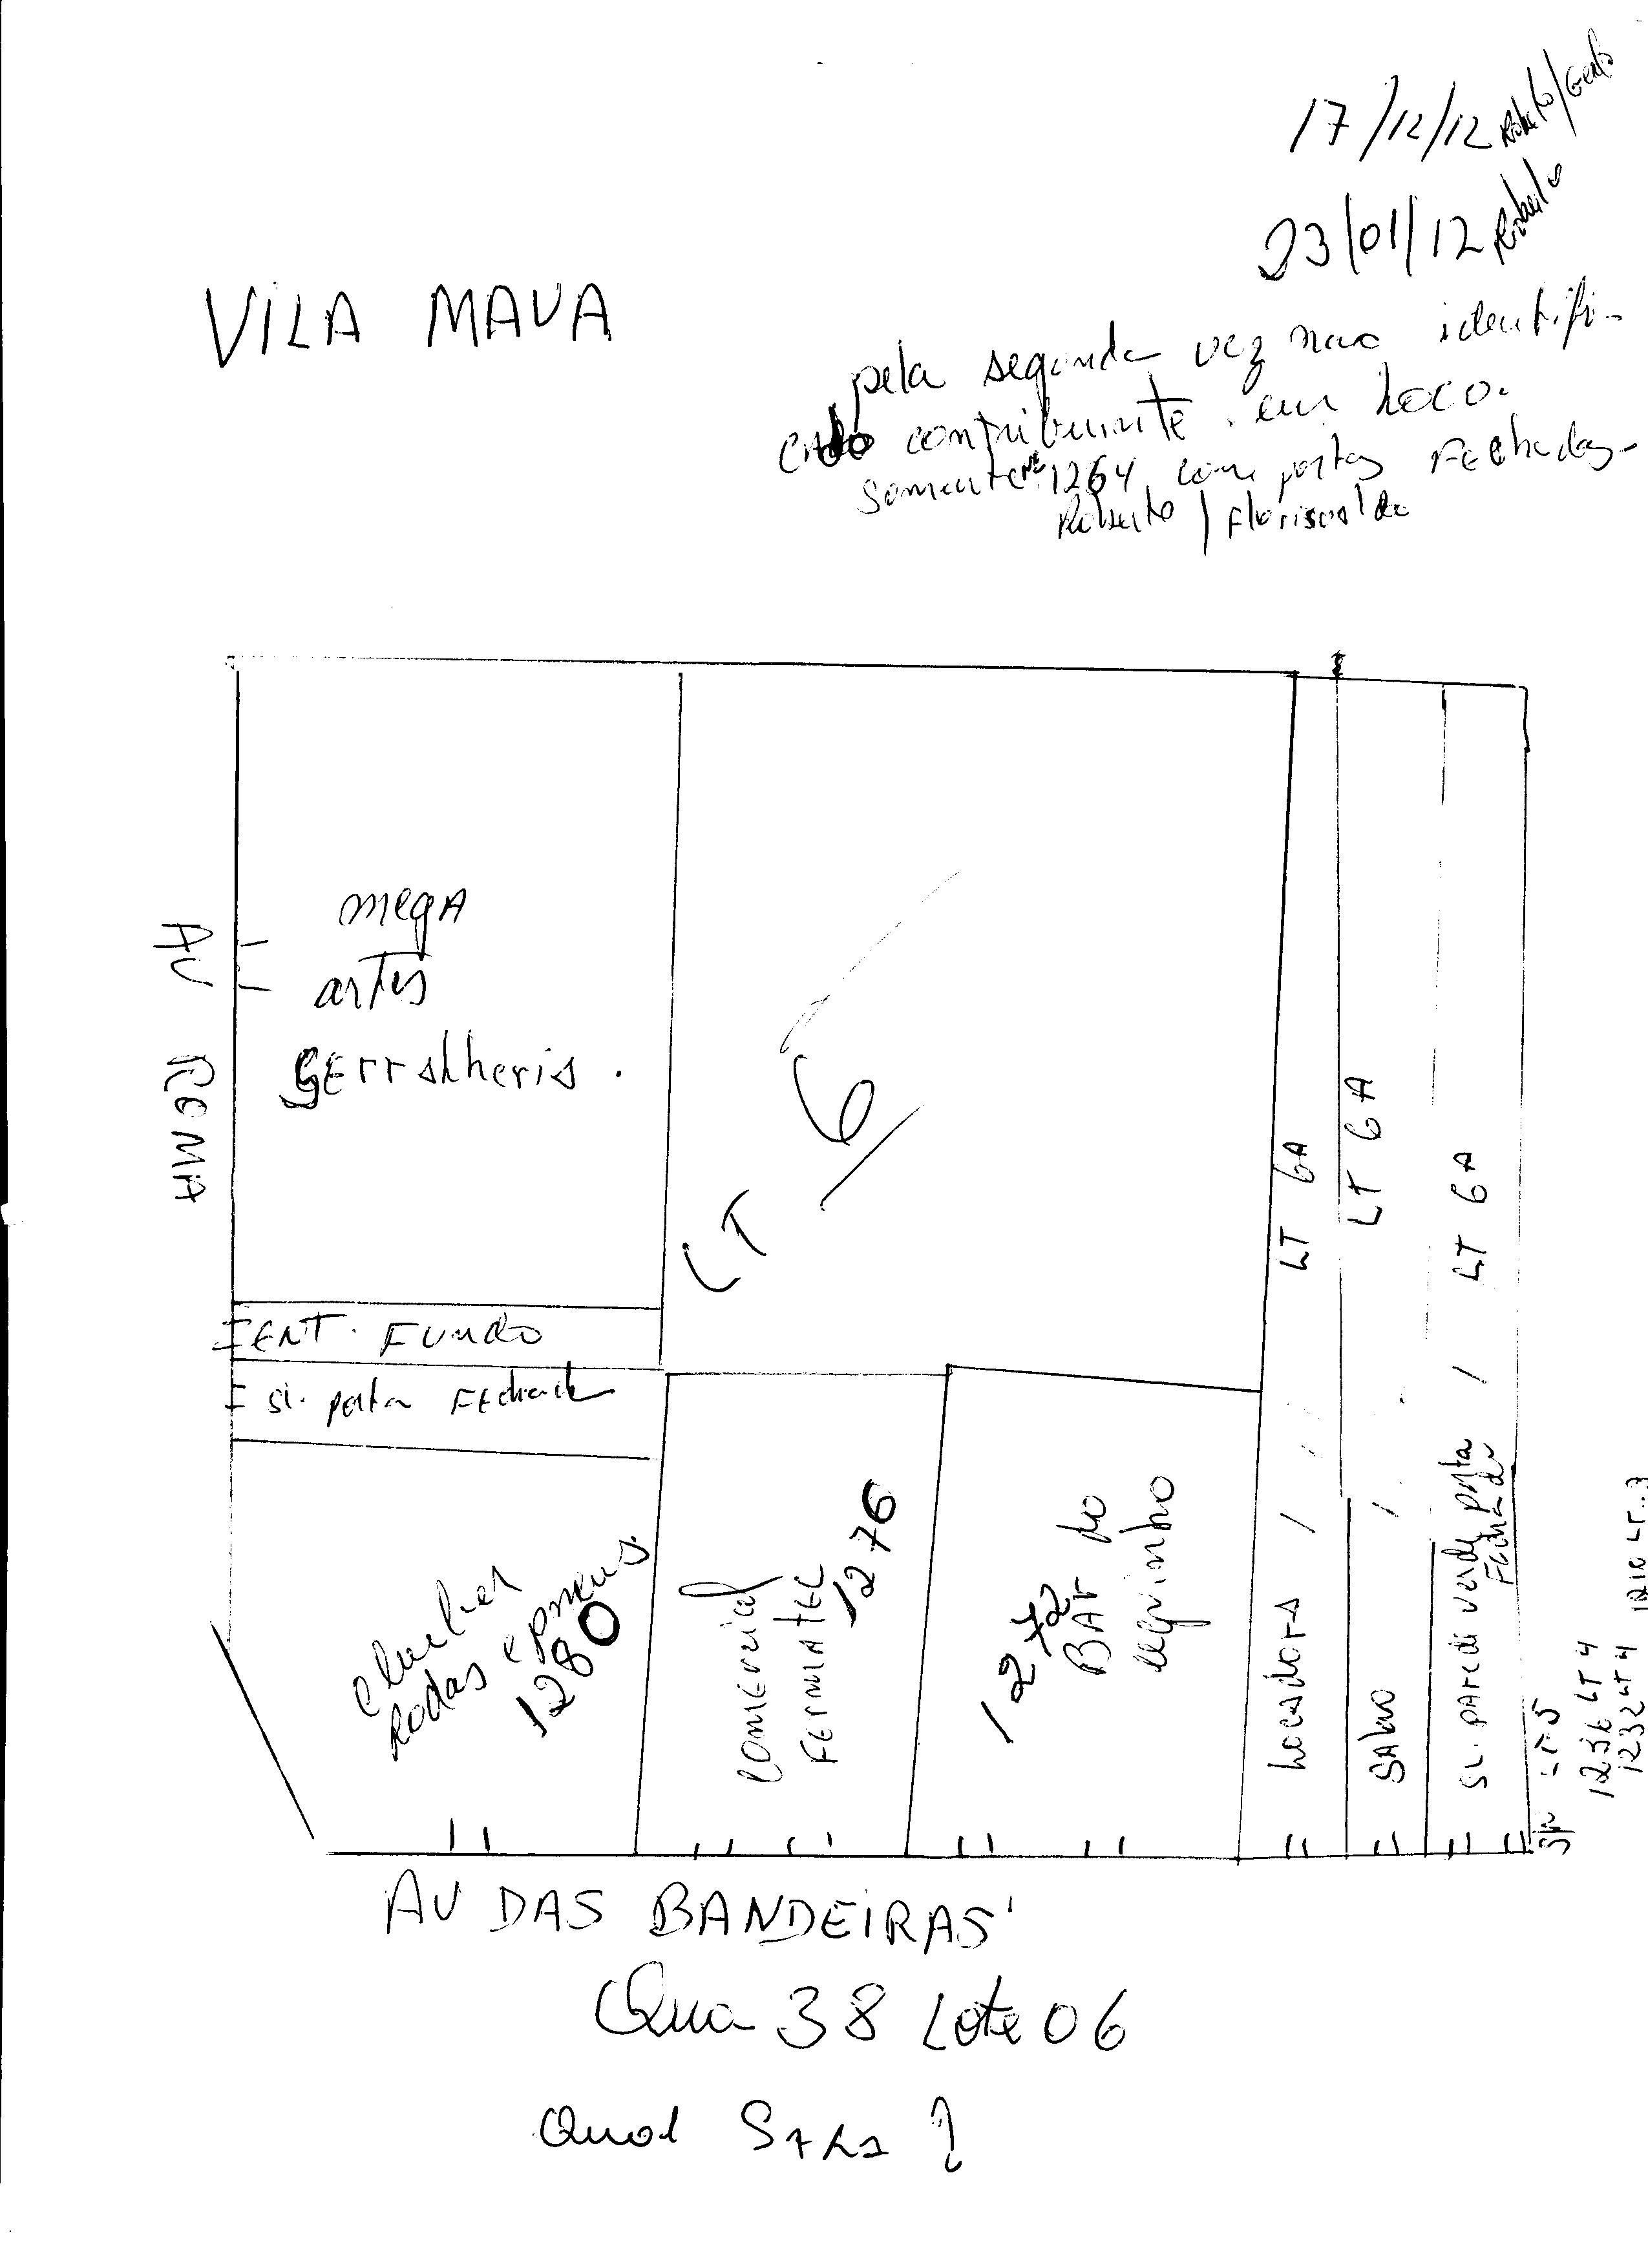 17/12/12 Roberto/
23/01/12 Roberto
VILA MAUA
pela segunda vez nao identifi-
cado contribuinte em Loco.
Somente nº 1264 com portas Fechadas-
Roberto / Florisvaldo
AV ROMA
mega
artes
serralheria.
LT 6
LT 6A
LT 6A
LT 6A
ENT. FUNDO
SL. porta FEchada
Rodas e pneus
1280
COMERCIAL
FERMATEC
1276
1272
BAR do
negrinho
Locadora /
Salao /
SL. PAREde verde porta /
FEchada
S/N LT-5
1236 LT 4
1232 LT 4
1210 LT.3
AV DAS BANDEIRAS
Qua 38 Lote 06
Qual SERA ?